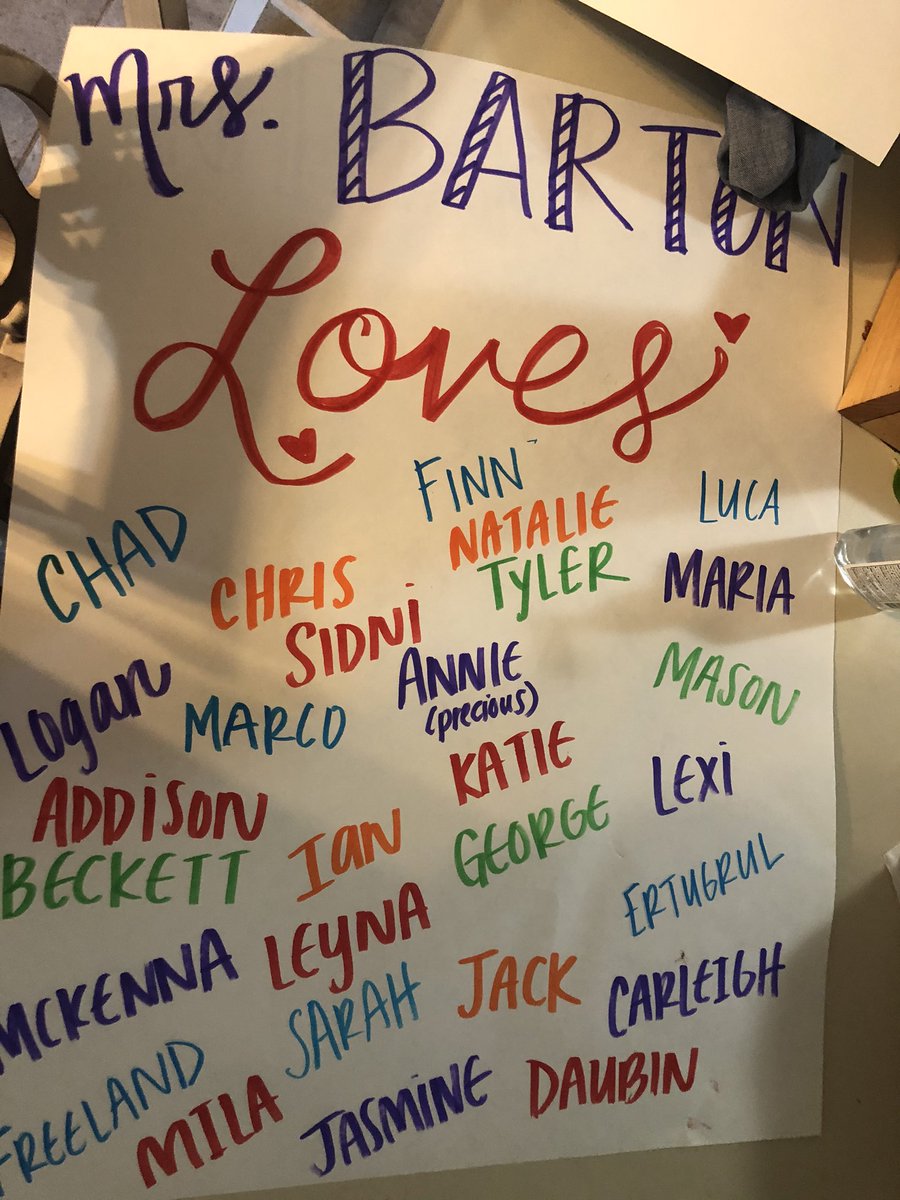 Mrs. BARTON
Loves
FINN
LUCA
CHAD
NATALIE
CHRIS
TYLER
MARIA
SIDNI
ANNIE
(precious)
MASON
Logan
MARCO
KATIE
LEXI
ADDISON
IAN
GEORGE
BECKETT
ERTUGRUL
LEYNA
MCKENNA
JACK
CARLEIGH
SARAH
FREELAND
MILA
JASMINE
DAUBIN